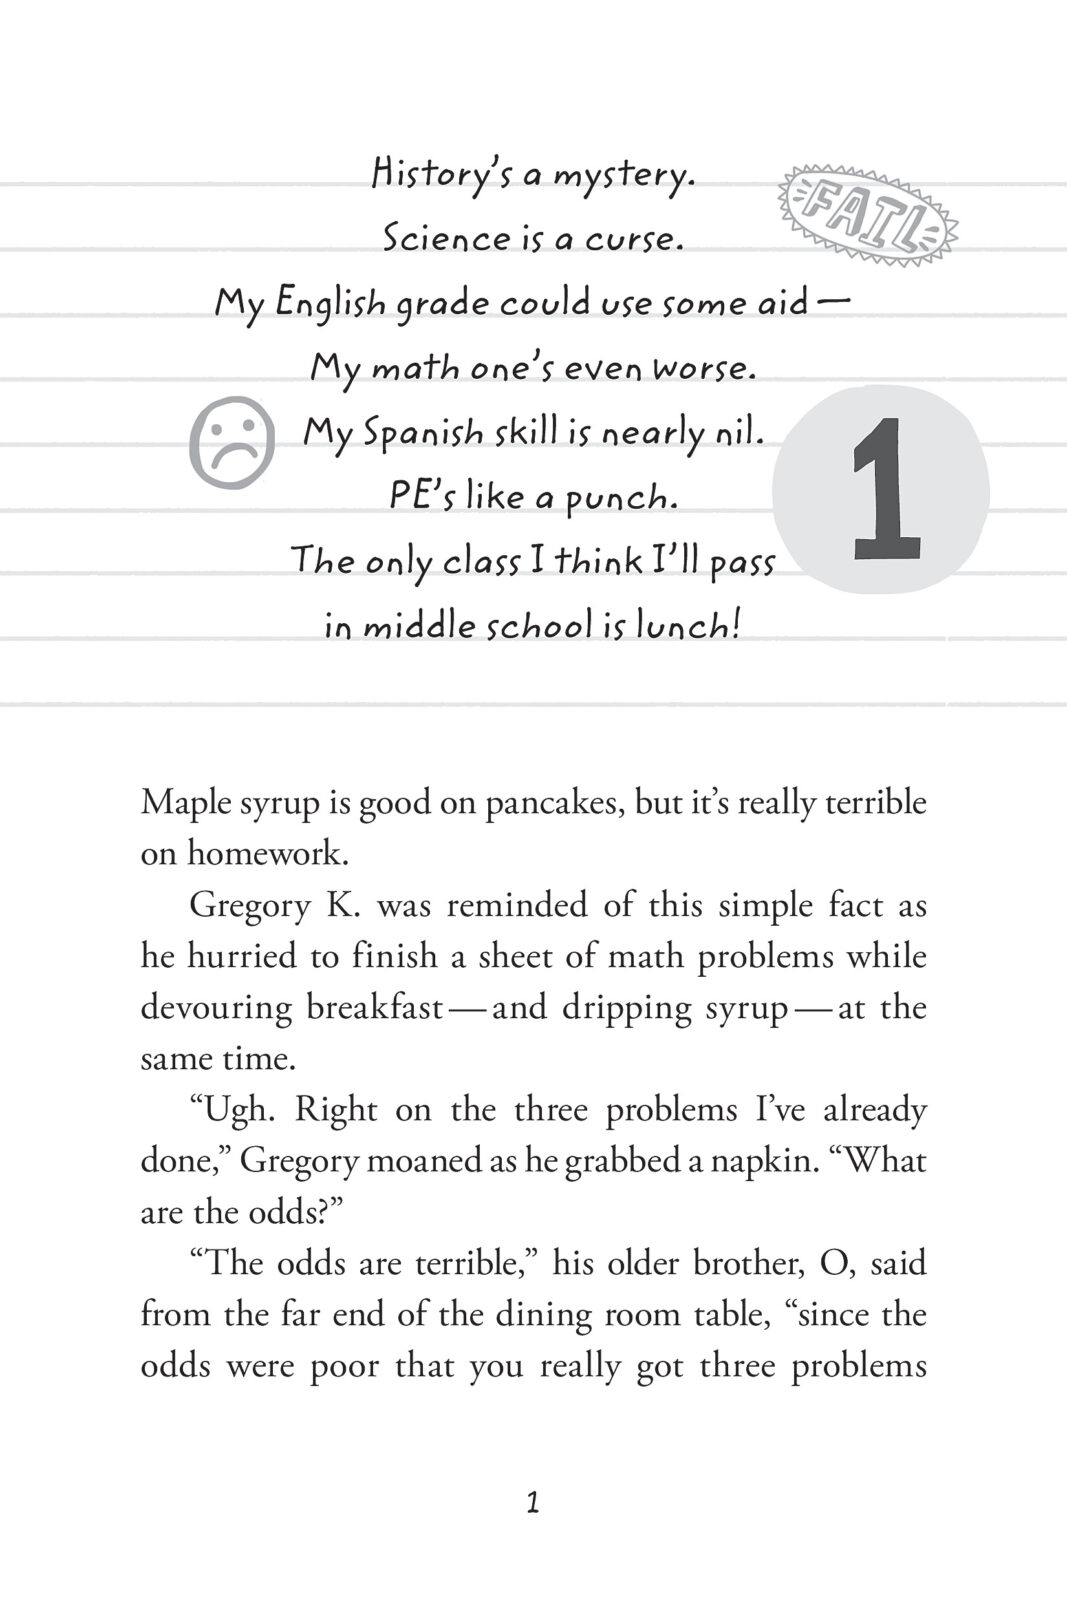 History's a mystery.
FAIL
Science is a curse.
My English grade could use some aid—
My math one's even worse.
My Spanish skill is nearly nil.
1
PE's like a punch.
The only class I think I'll pass
in middle school is lunch!
Maple syrup is good on pancakes, but it's really terrible
on homework.
Gregory K. was reminded of this simple fact as
he hurried to finish a sheet of math problems while
devouring breakfast—and dripping syrup—at the
same time.
“Ugh. Right on the three problems I've already
done,” Gregory moaned as he grabbed a napkin. “What
are the odds?”
“The odds are terrible,” his older brother, O, said
from the far end of the dining room table, “since the
odds were poor that you really got three problems
1